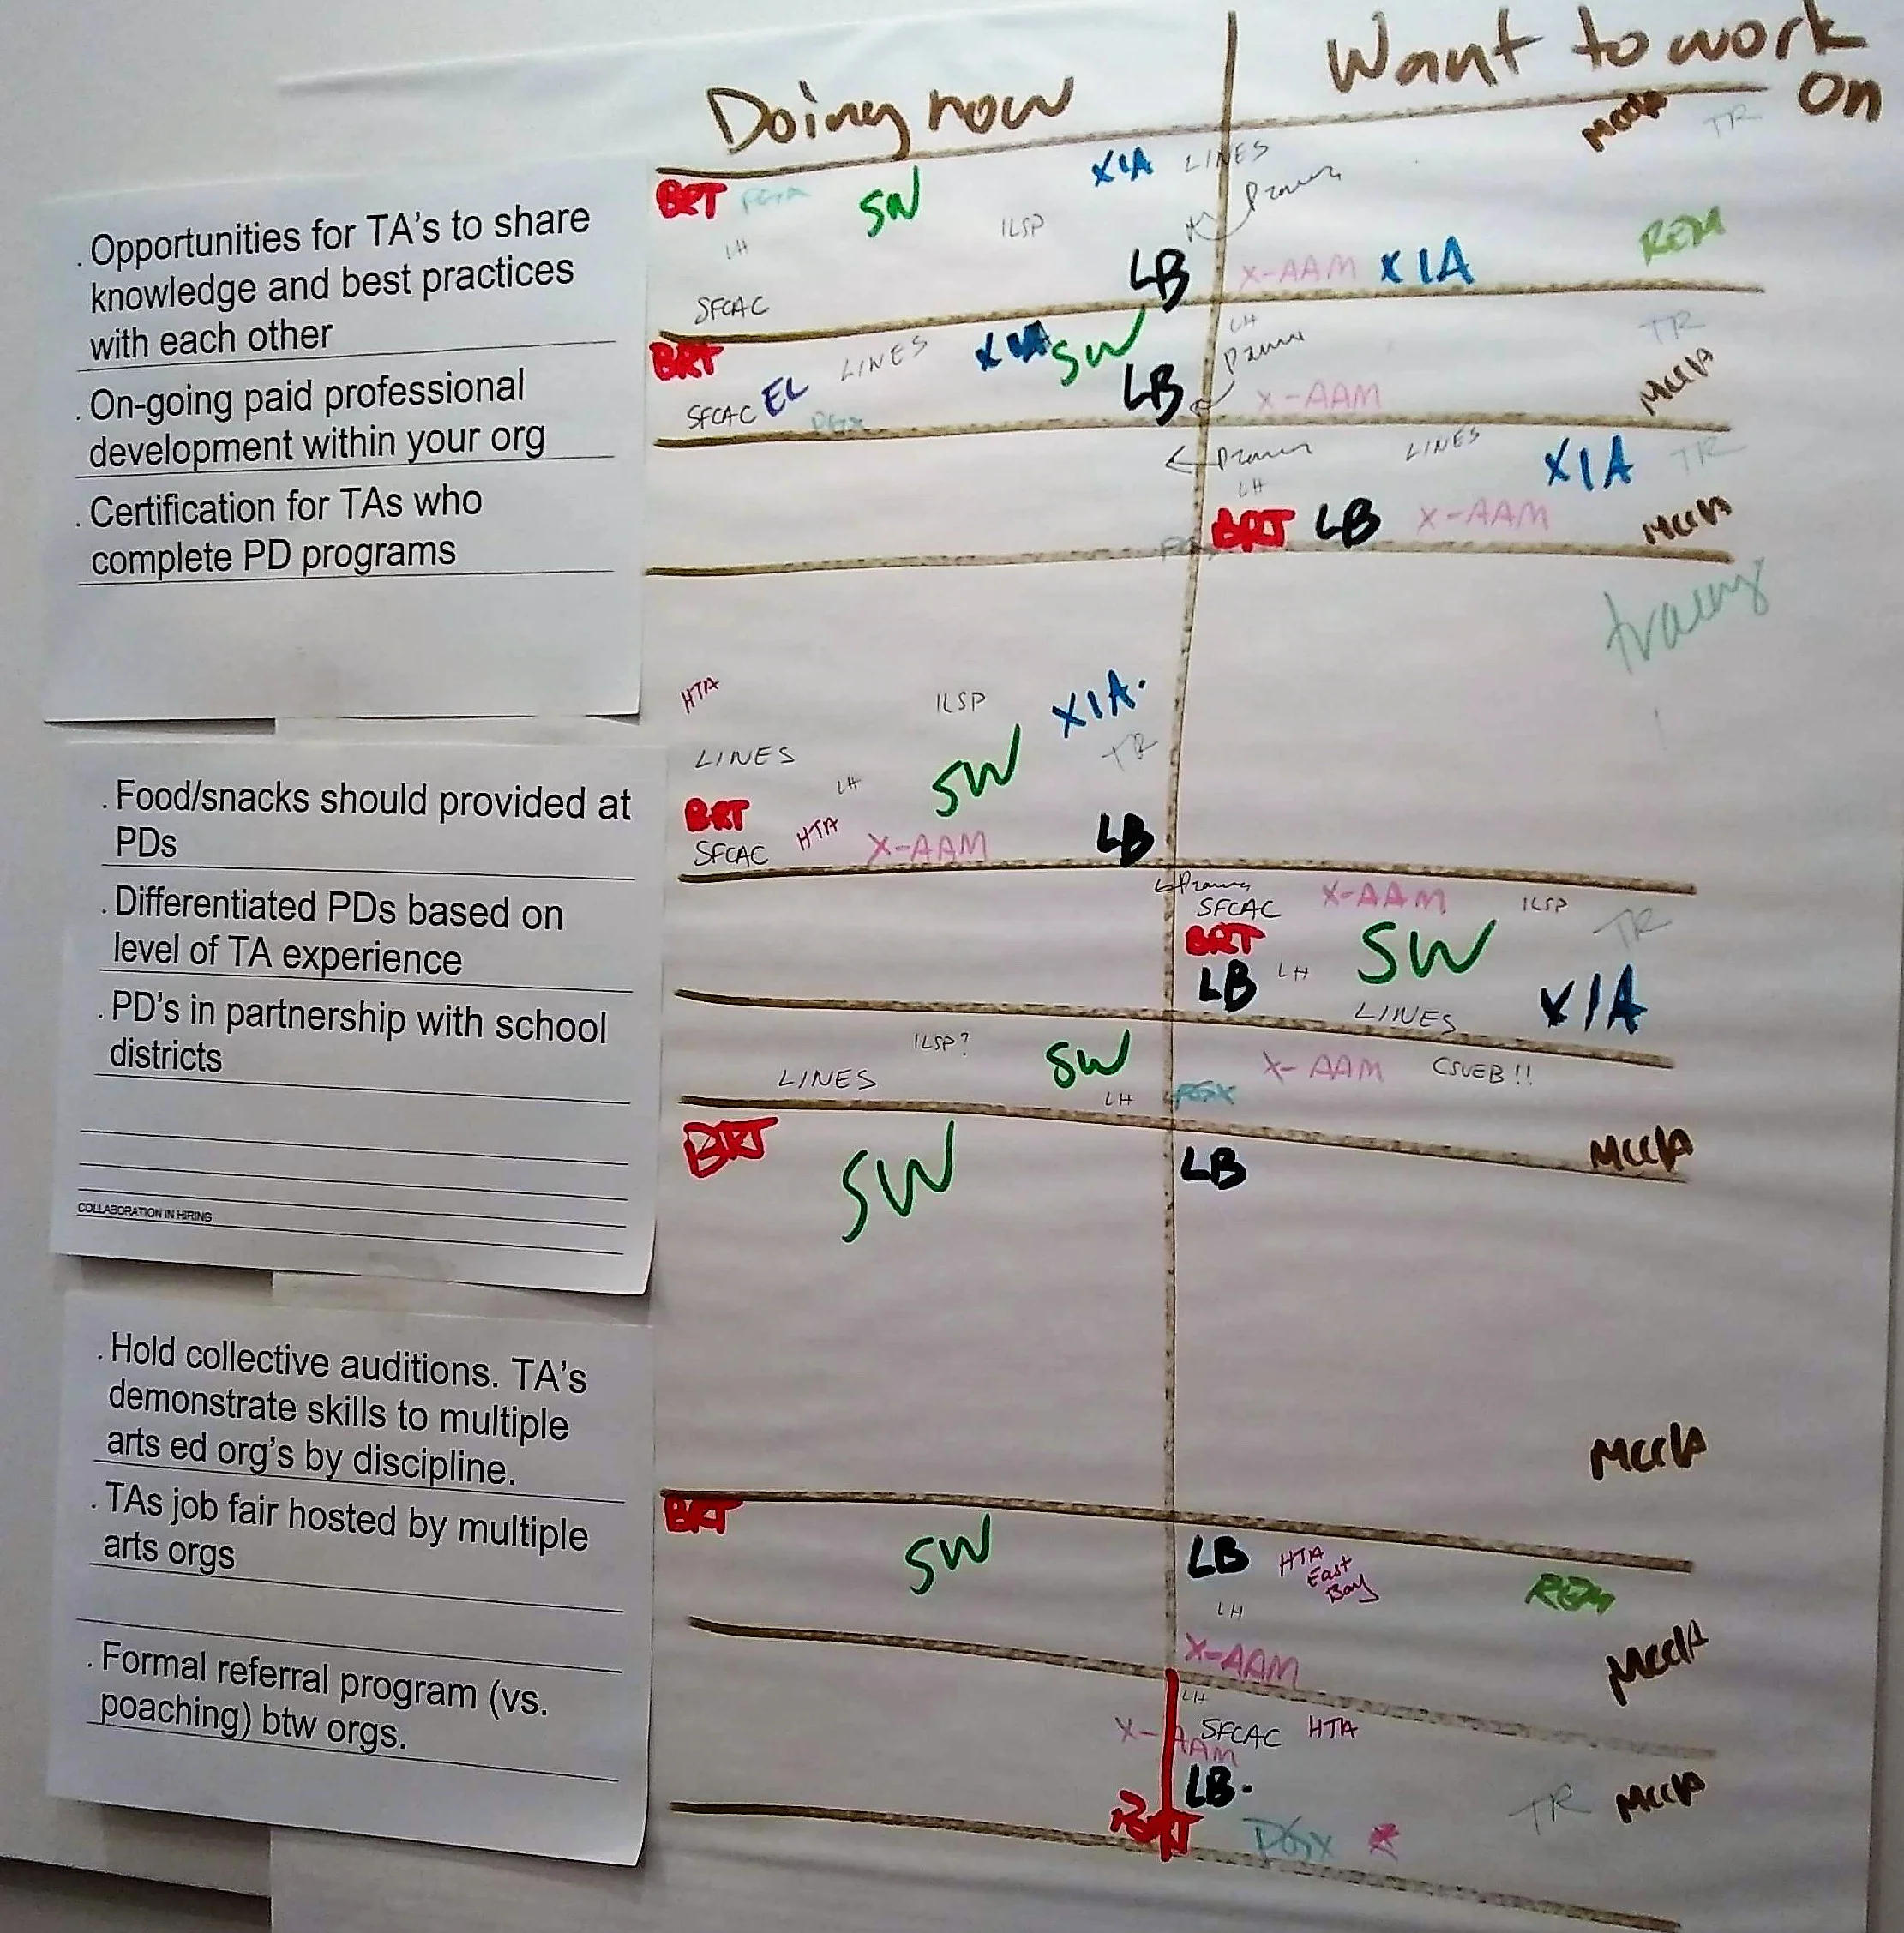 Doing now
Want to work
on
. Opportunities for TA's to share
knowledge and best practices
with each other
BRT SW XIA LINES MCCIA TR
LH ILSP
SFCAC LB X-AAM XIA REM
. On-going paid professional
development within your org
BRT LINES XIA SW LH TR
SFCAC EL PGX LB X-AAM MCCIA
. Certification for TAs who
complete PD programs
LINES XIA TR
LH
BRT LB X-AAM MCCIA
. Food/snacks should provided at
PDs
HTA ILSP XIA.
LINES LH SW TR
BRT
SFCAC HTA X-AAM LB
. Differentiated PDs based on
level of TA experience
SFCAC X-AAM ILSP TR
BRT SW
LB LH XIA
LINES
. PD's in partnership with school
districts
ILSP? SW X-AAM CSUEB!!
LINES LH PGX
BRT SW LB MCCIA
COLLABORATION IN HIRING
. Hold collective auditions. TA's
demonstrate skills to multiple
arts ed org's by discipline.
MCCIA
. TAs job fair hosted by multiple
arts orgs
BRT SW LB HTA
East
Bay
REM
LH
X-AAM MCCIA
. Formal referral program (vs.
poaching) btw orgs.
LH
X-AAM SFCAC HTA
LB.
BRT PGX TR MCCIA